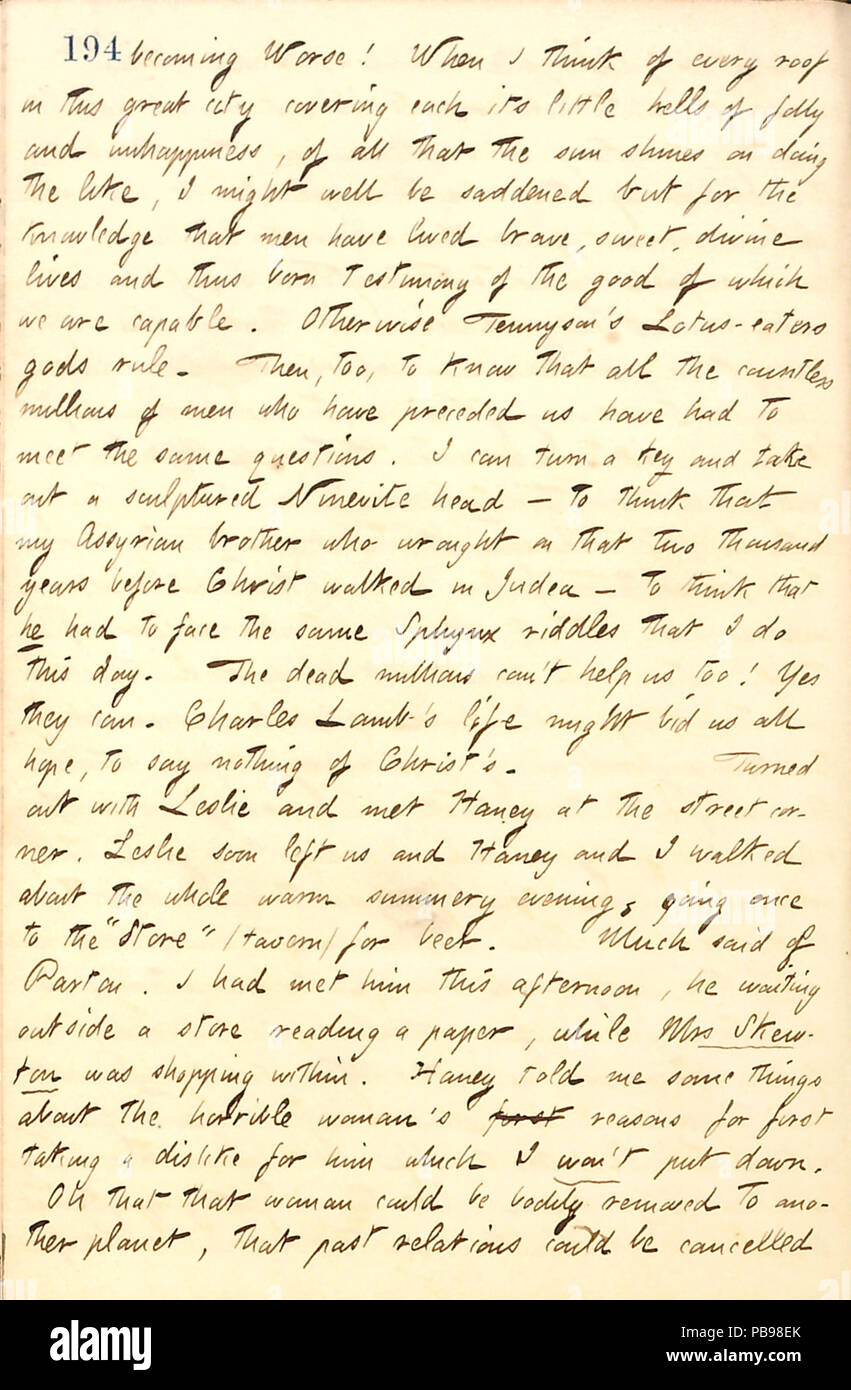 194 becoming Worse! When I think of every roof
in this great city covering each its little hells of folly
and unhappiness, of all that the sun shines on doing
the like, I might well be saddened but for the
knowledge that men have lived brave, sweet, divine
lives and thus born testimony of the good of which
we are capable. Otherwise Tennyson's Lotus-eaters
gods rule. Then, too, to know that all the countless
millions of men who have preceded us have had to
meet the same questions. I can turn a key and take
out a sculptured Ninevite head — to think that
my Assyrian brother who wrought on that two thousand
years before Christ walked in Judea — to think that
he had to face the same Sphynx riddles that I do
this day. The dead millions can't help us too! Yes
they can. Charles Lamb's life might bid us all
hope, to say nothing of Christ's. Turned
out with Leslie and met Haney at the street cor-
ner. Leslie soon left us and Haney and I walked
about the whole warm summery evening, going once
to the "Store" (tavern) for beer. Much said of
Parton. I had met him this afternoon, he waiting
outside a store reading a paper, while Mrs Skew-
ton was shopping within. Haney told me some things
about the horrible woman's first reasons for first
taking a dislike for him which I won't put down.
Oh that that woman could be bodily removed to ano-
ther planet, that past relations could be cancelled
alamy
Image ID: PB98EK
www.alamy.com